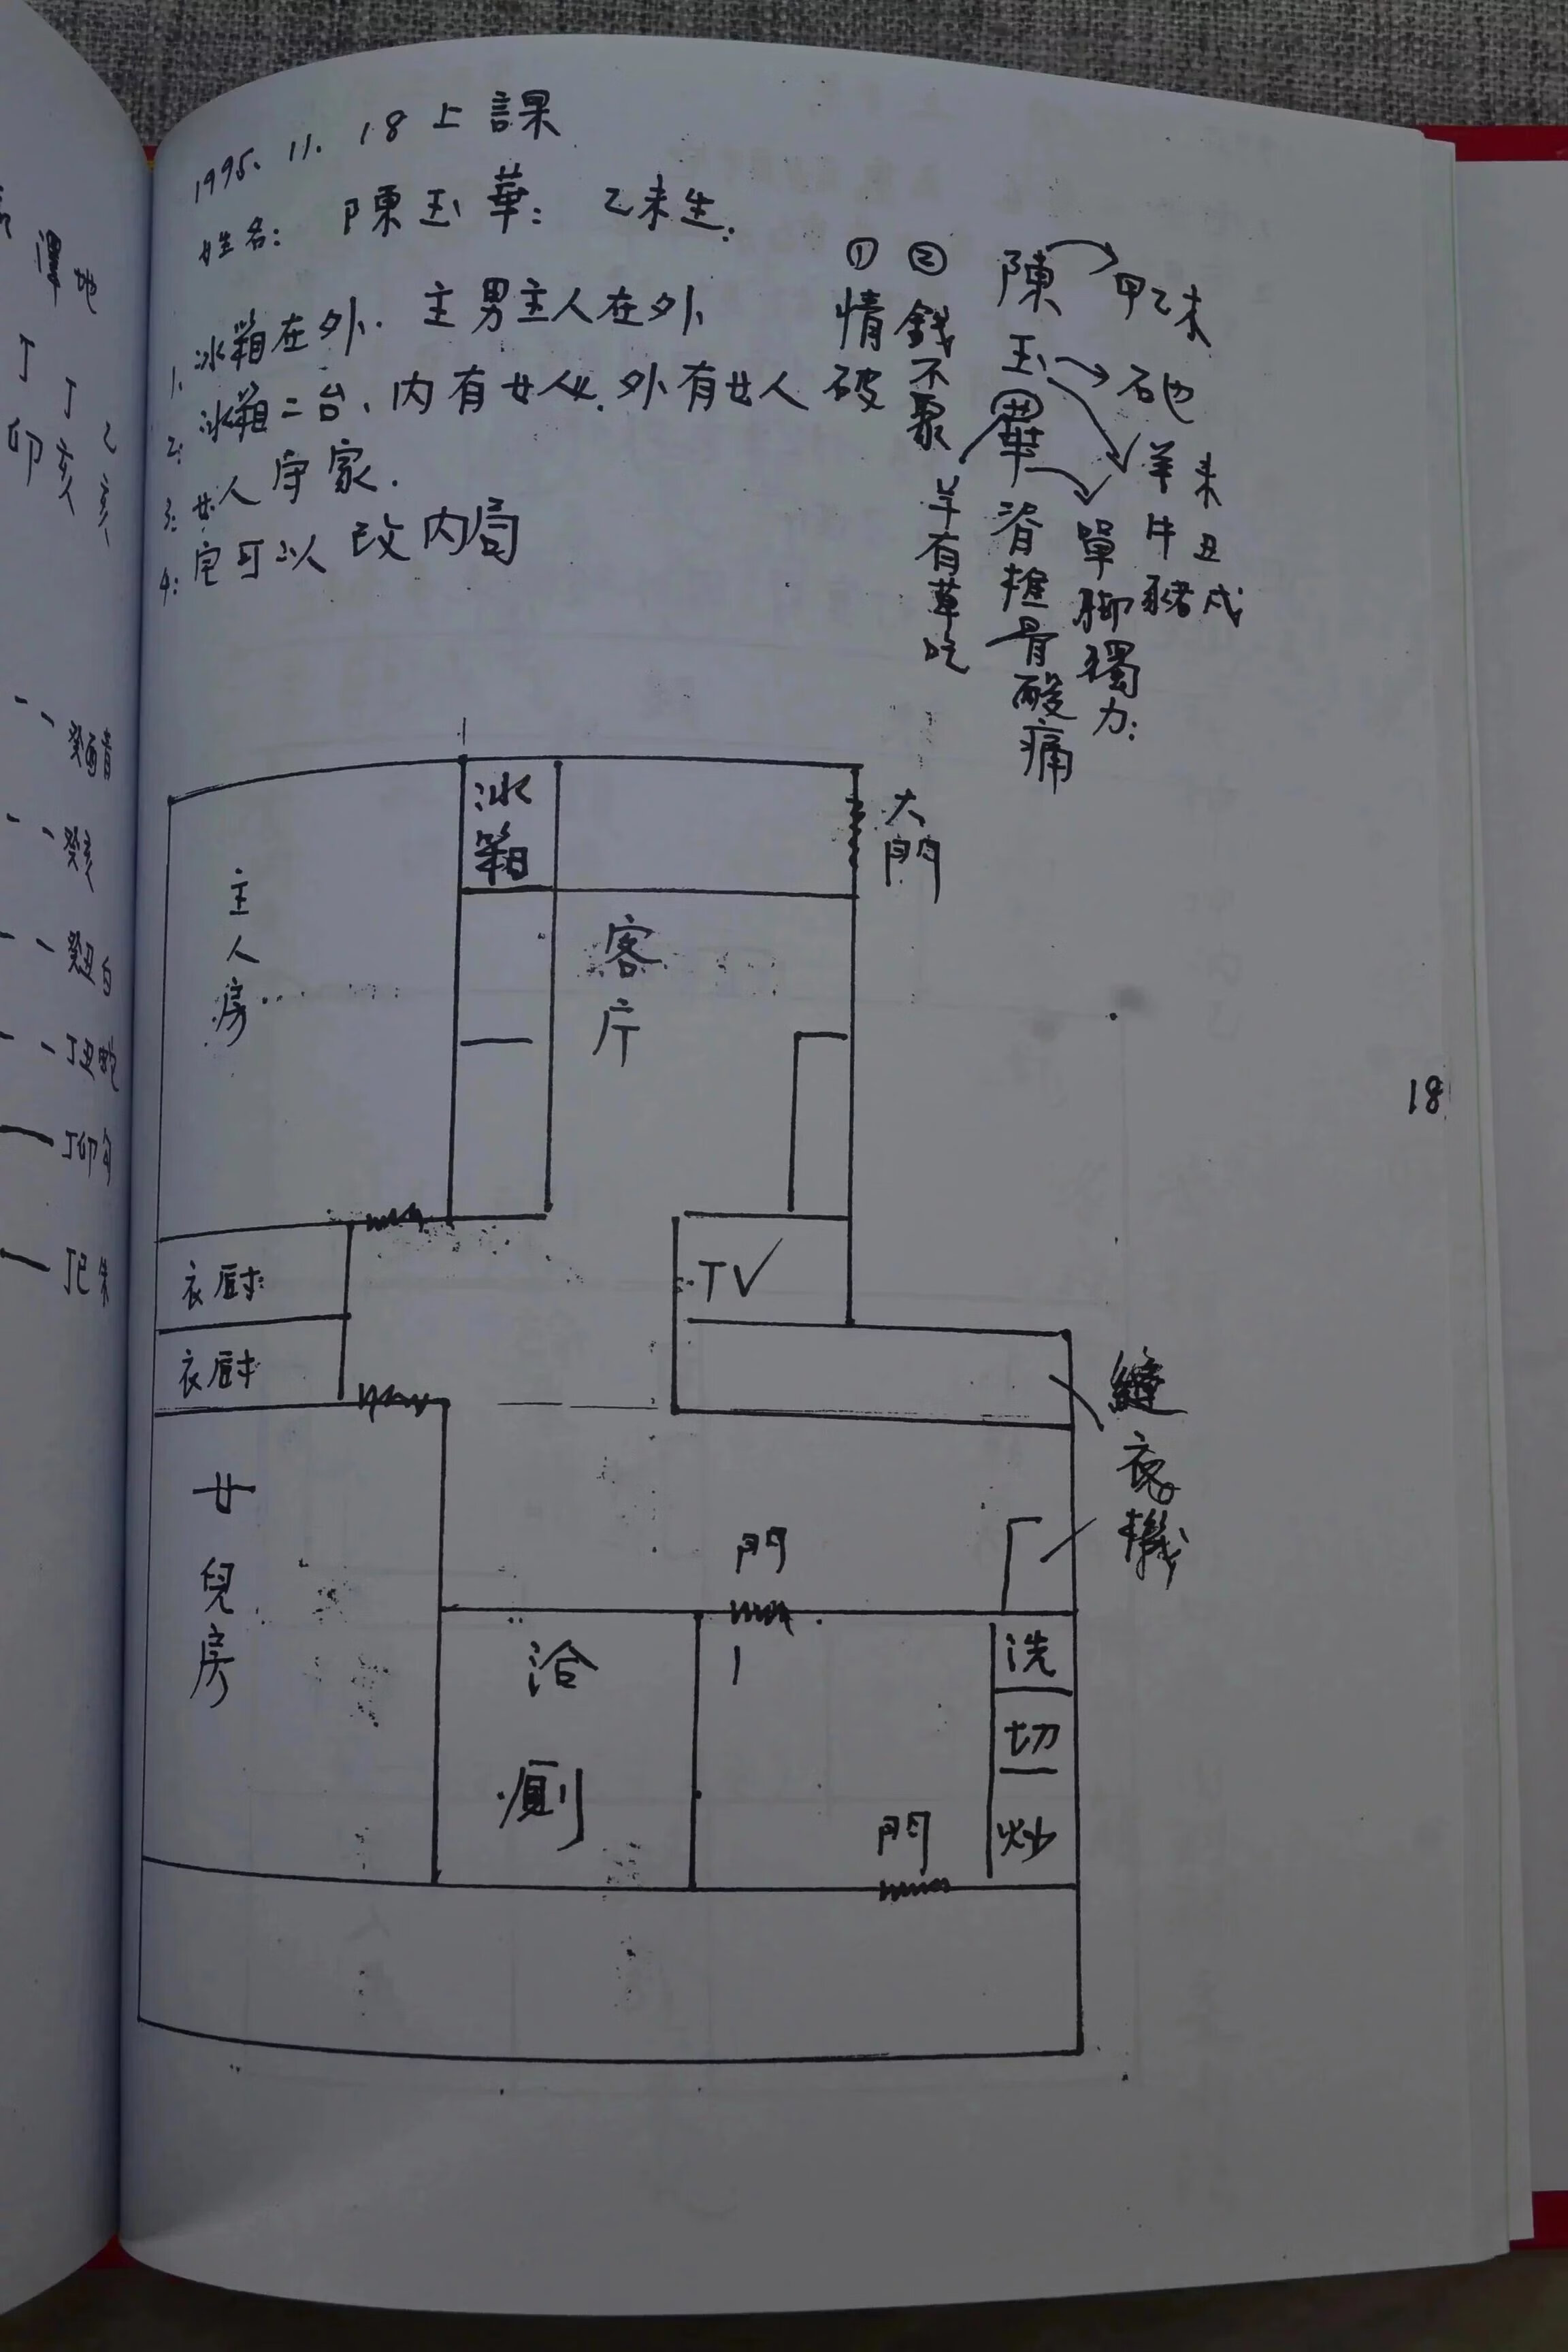 1995. 11. 18 上課
姓名: 陳玉華: 乙未生.
1. 冰箱在外. 主男主人在外
2: 冰箱二台、內有女人. 外有女人
3: 女人守家.
4: 它可以改內局
① 情破
② 錢不聚
陳玉華
甲乙未
石地
羊未
牛丑
豬戌
單脚獨力:
脊椎骨酸痛
羊有草吃
冰箱
大門
主人房
客庁
TV
衣厨
衣厨
縫衣機
女兒房
門
浴廁
洗
切
炒
門
18
地
丁
丁
乙
卯
亥
亥
癸亥
癸丑白
丁丑蛇
丁卯勾
丁巳朱